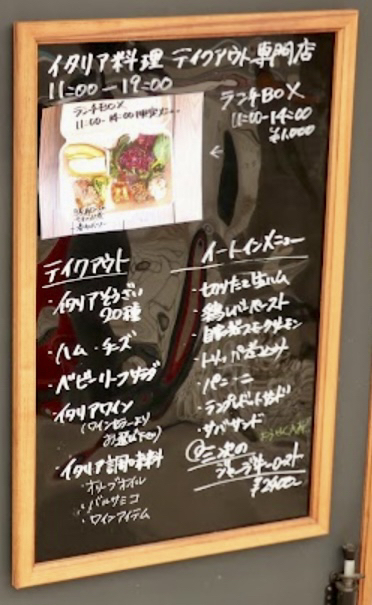 イタリア料理 テイクアウト専門店
11:00－19:00
ランチBOX
11:00－14:00
ランチBOX
11:00－14:00
¥1,000
←
テイクアウト
・イタリアそうざい
20種
・ハム・チーズ
・ベビーリーフサラダ
・イタリアワイン
(ワインセラーより
お選び下さい)
・イタリア調味料
・オリーブオイル
・バルサミコ
・ワインアイテム
イートインメニュー
・切りたて生ハム
・鶏レバーペースト
・自家製スモークサーモン
・トリッパ
・パニーニ
・ランプレドットサンド
・サバサンド
十二次の
ジャージー牛ロースト
¥2400